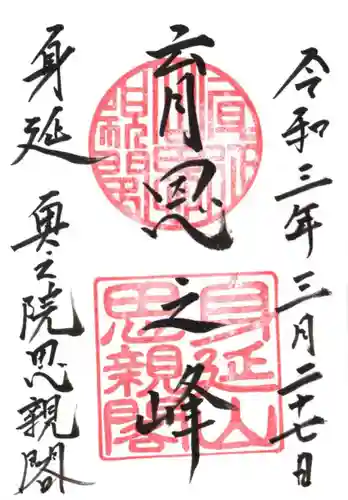 令和三年三月二十七日
育恩之峰
身延
奥之院思親閣
身延山
思親閣